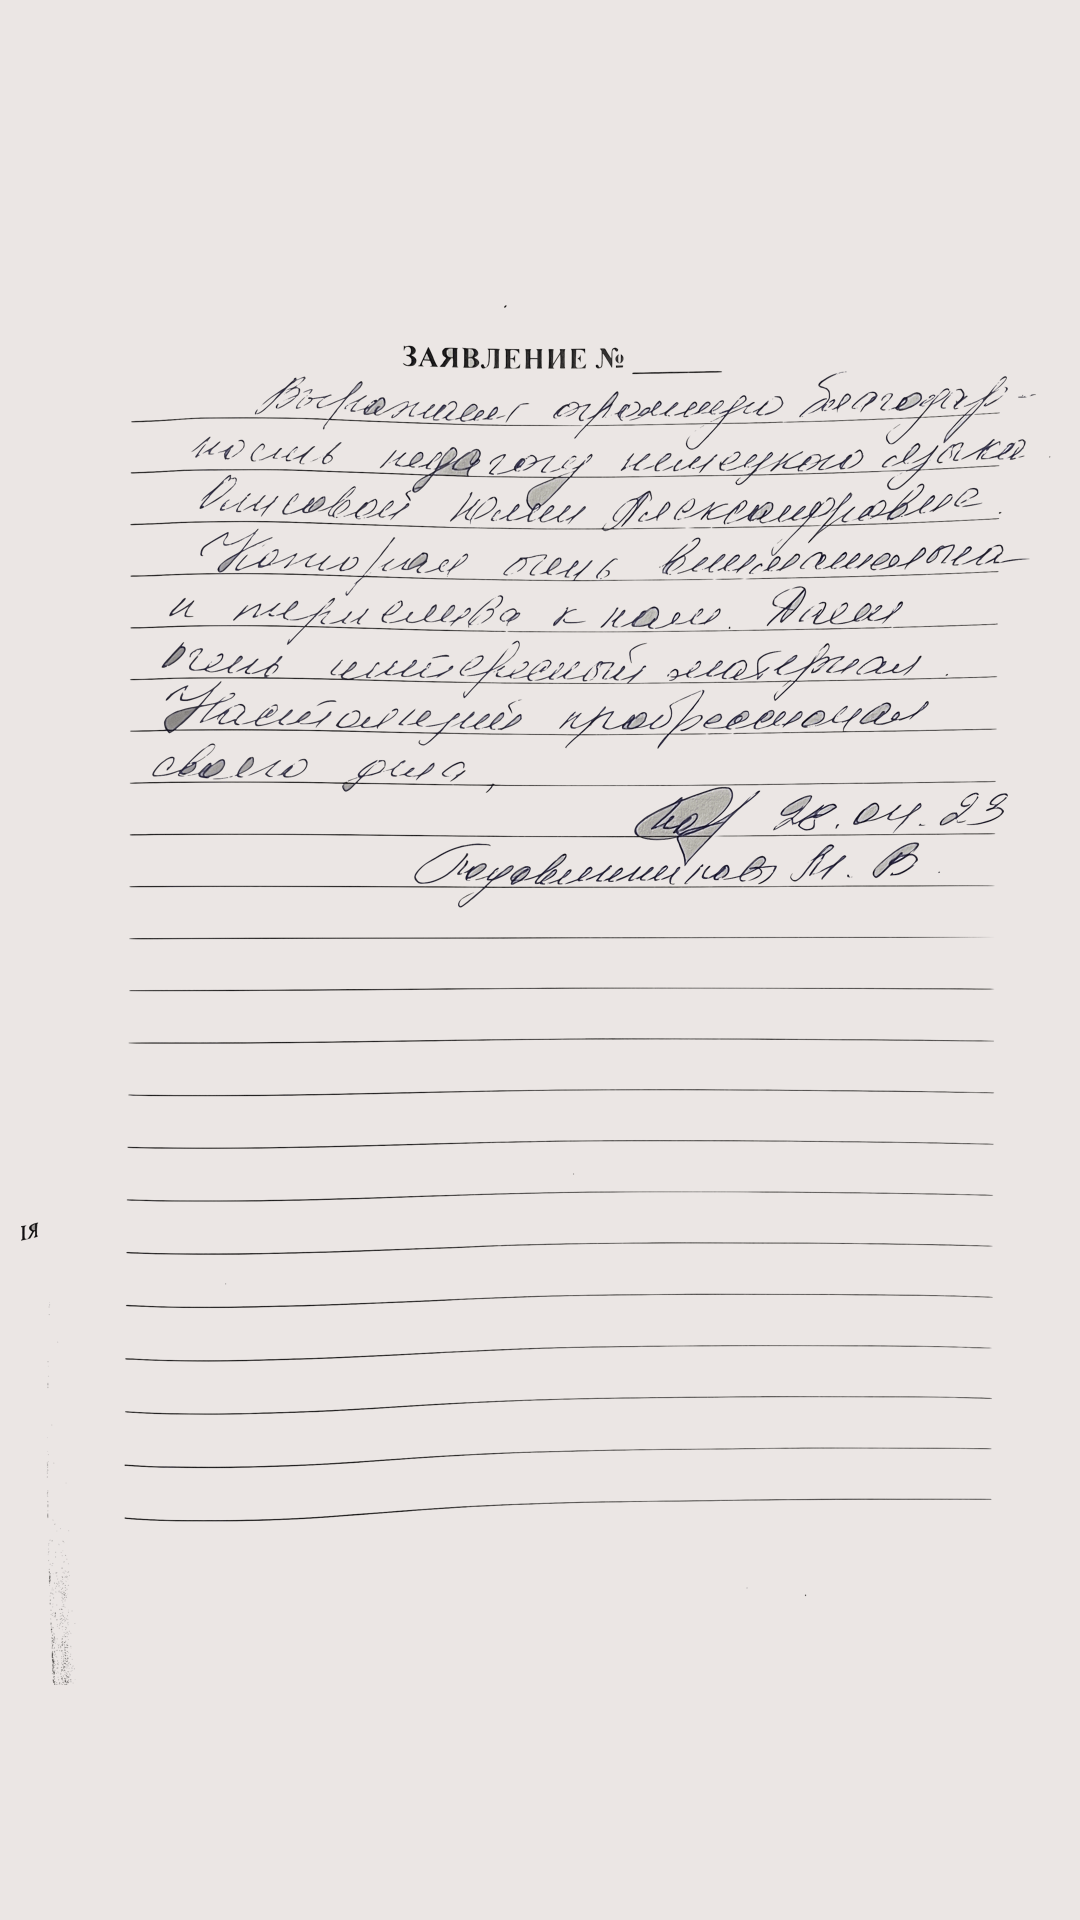 ЗАЯВЛЕНИЕ № ______
Выражаем огромную благодар-
ность педагогу немецкого языка
Олисовой Юлии Александровне.
Которая очень внимательна
и терпелива к нам. Дает
очень интересный материал.
Настоящий профессионал
своего дела,
28.04.23
М. В.
ІЯ